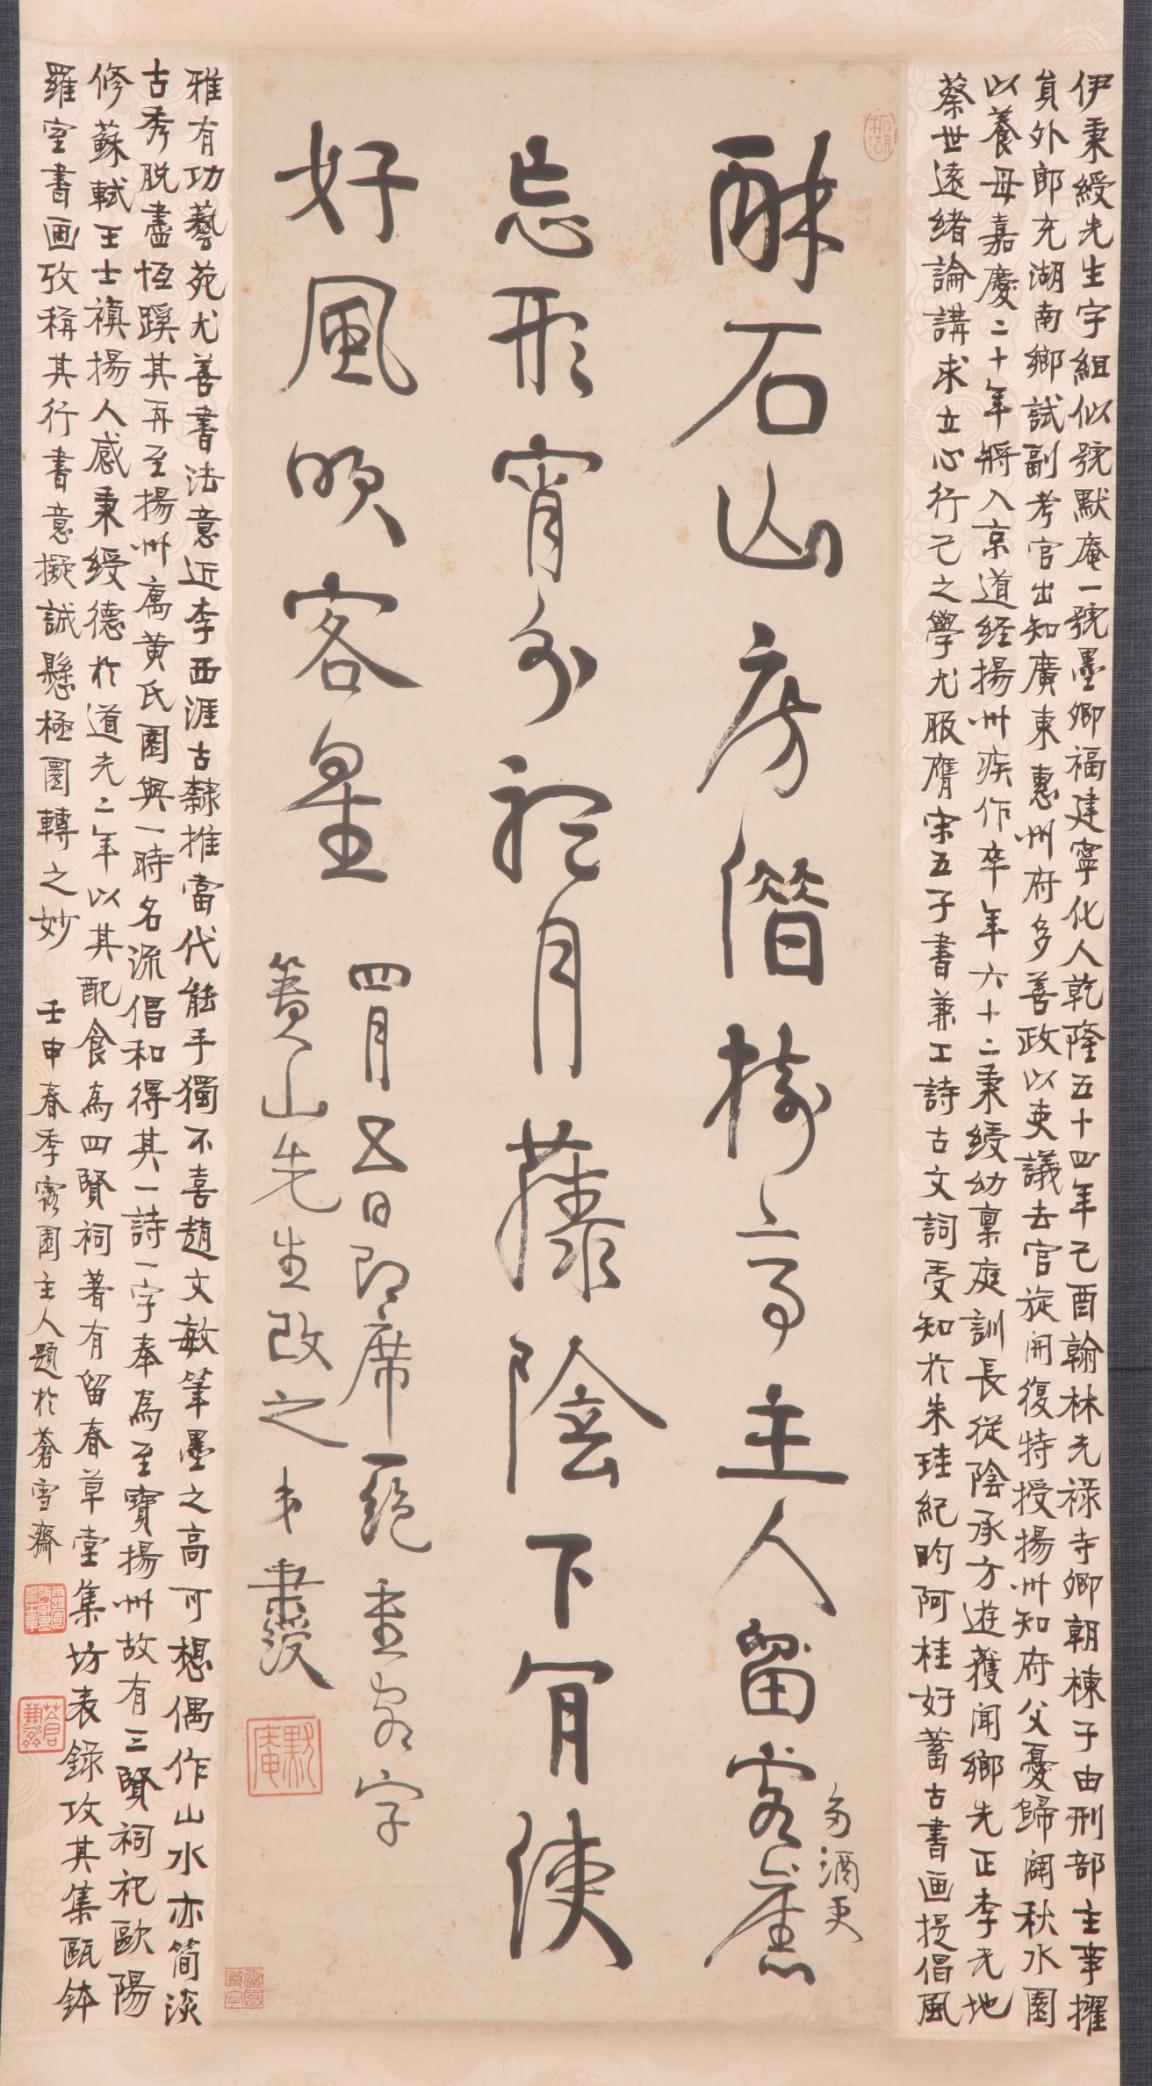 伊秉綬先生字組似號默庵一號墨卿福建寧化人乾隆五十四年己酉翰林光祿寺卿朝棟子由刑部主事擢
員外郎充湖南鄉試副考官出知廣東惠州府多善政以吏議去官旋開復特授揚州知府父憂歸闢秋水園
以養母嘉慶二十年將入京道經揚州疾作卒年六十二秉綬幼稟庭訓長從陰承方遊獲聞鄉先正李光地
蔡世遠緒論講求立心行己之學尤服膺宋五子書兼工詩古文詞受知於朱珪紀昀阿桂好蓄古書画提倡風
酥石山房偕樹亭主人留客舊
多酒更
忘形宵分祀月藤陰下宜使
好風吹客星
四月五日即席一絕重客字
簣山先生改之 弟秉綬
默庵
雅有功藝苑尤善書法意近李西涯古隸推當代能手獨不喜趙文敏筆墨之高可想偶作山水亦簡淡
古秀脱盡恆蹊其再至揚州寓黄氏園與一時名流倡和得其一詩一字奉為至寶揚州故有三賢祠祀歐陽
修蘇軾王士禛揚人感秉綬德於道光二年以其配食為四賢祠著有留春草堂集坊表錄攷其集甌鉢
羅室書画攷稱其行書意擬誠懸極圜轉之妙 壬申春季霱園主人題於蒼雪齋